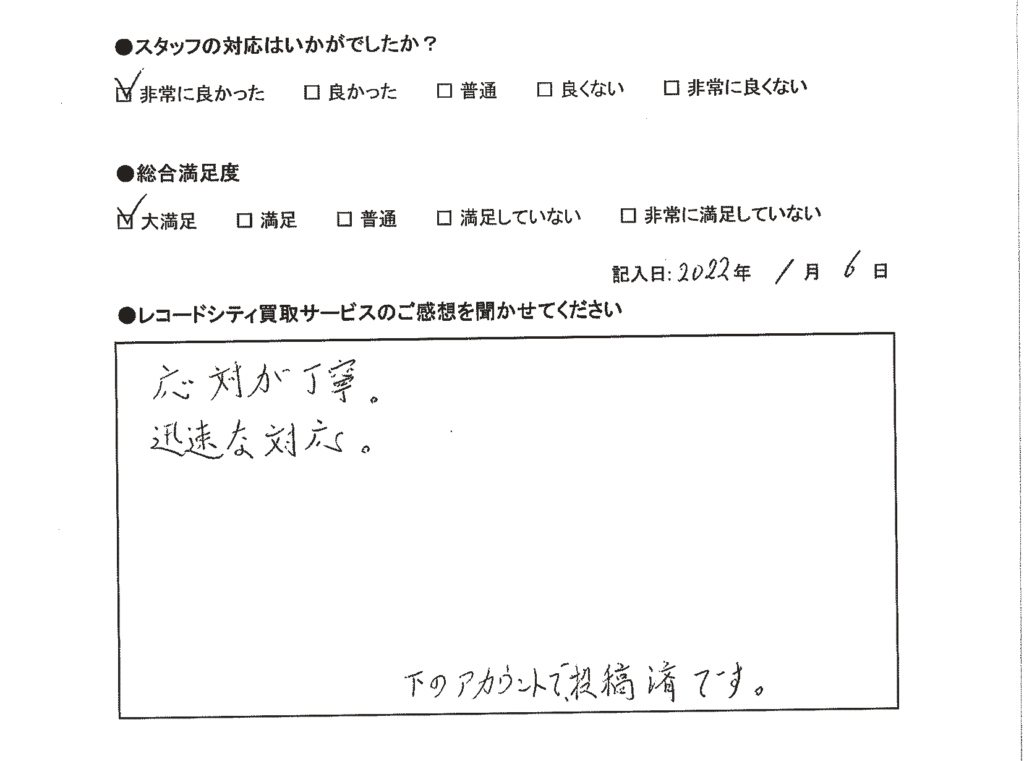 ●スタッフの対応はいかがでしたか？
☑ 非常に良かった □ 良かった □ 普通 □ 良くない □ 非常に良くない
●総合満足度
☑ 大満足 □ 満足 □ 普通 □ 満足していない □ 非常に満足していない
記入日: 2022年 1月 6日
●レコードシティ買取サービスのご感想を聞かせてください
応対が丁寧。
迅速な対応。
下のアカウントで、投稿済です。